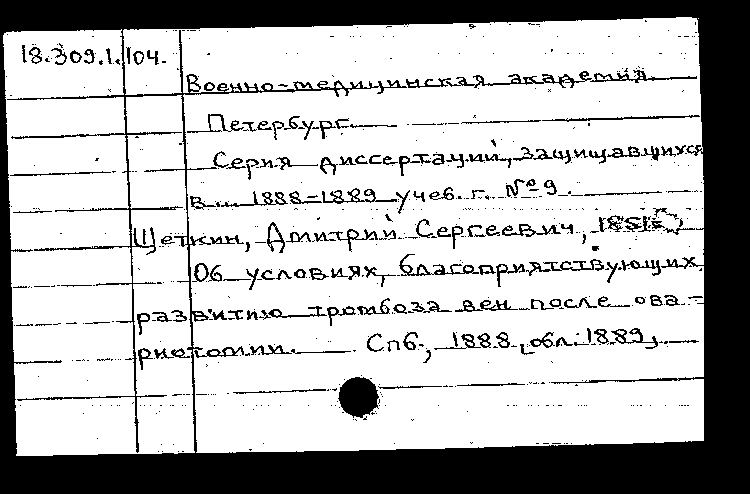 18.309.1.104.
Военно-медицинская академия.
Петербург.
Серия диссертаций, защищавшихся
в ... 1888-1889 учеб. г. № 9.
Щеткин, Дмитрий Сергеевич, 1851-
Об условиях, благоприятствующих
развитию тромбоза вен после ова-
риотомии. Спб., 1888, [обл. 1889].